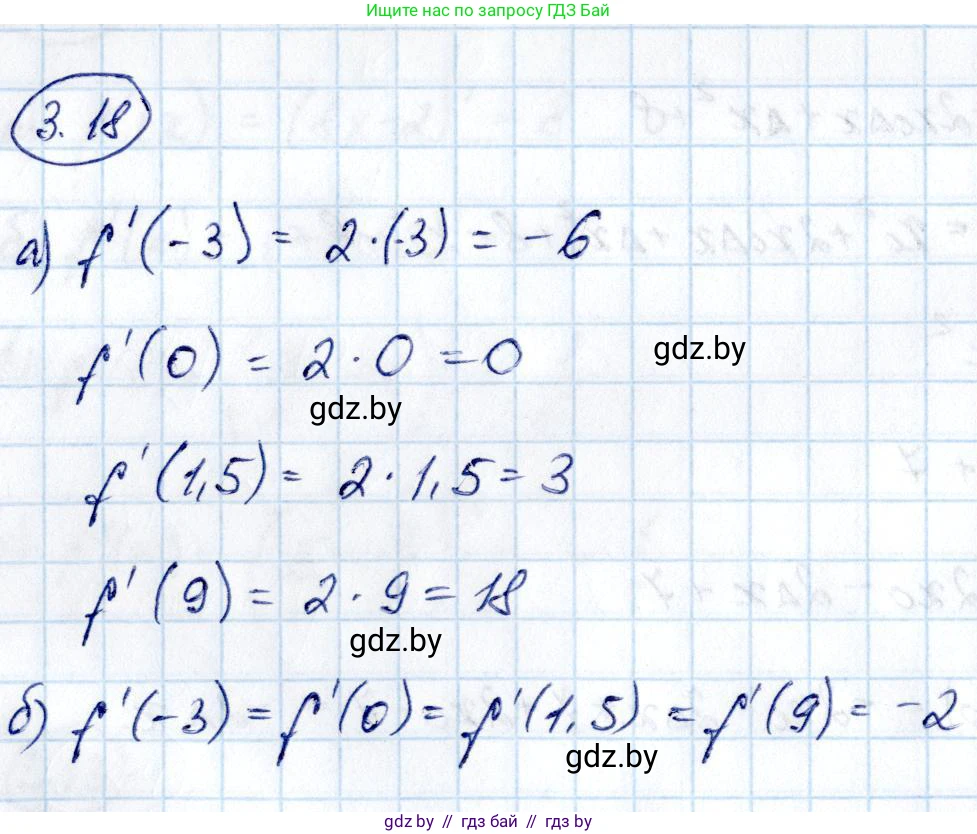 Ищите нас по запросу ГДЗ Бай
3. 18
а) f'(-3) = 2·(-3) = -6
f'(0) = 2·0 = 0
gdz.by
gdz.by
f'(1,5) = 2·1,5 = 3
f'(9) = 2·9 = 18
gdz.by
б) f'(-3) = f'(0) = f'(1,5) = f'(9) = -2
gdz.by
gdz.by // гдз бай // гдз by